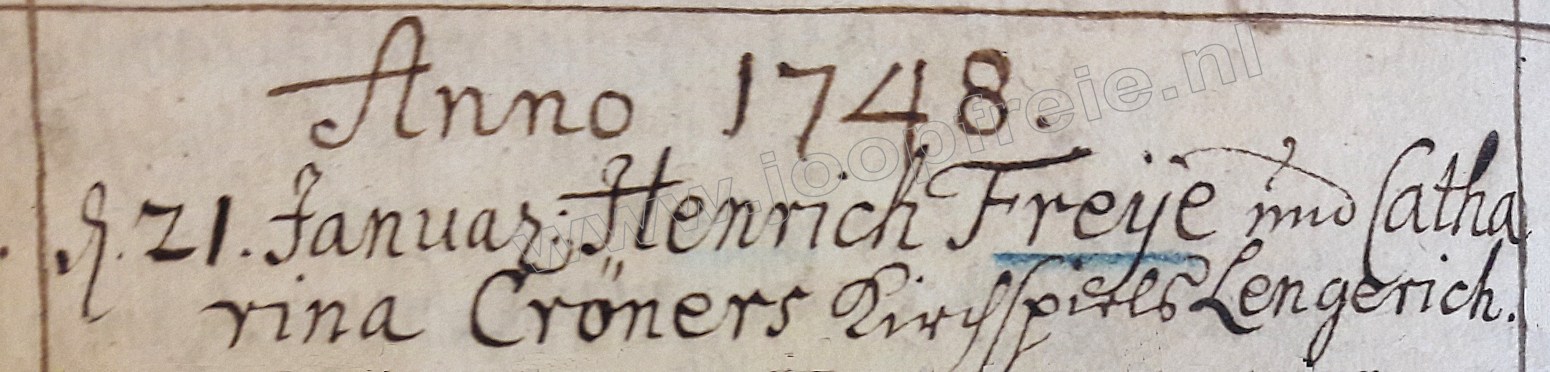 Anno 1748.
d. 21. Januar: Henrich Freÿe und Catha
rina Cröners Kirchspiels Lengerich.
www.joopfreie.nl